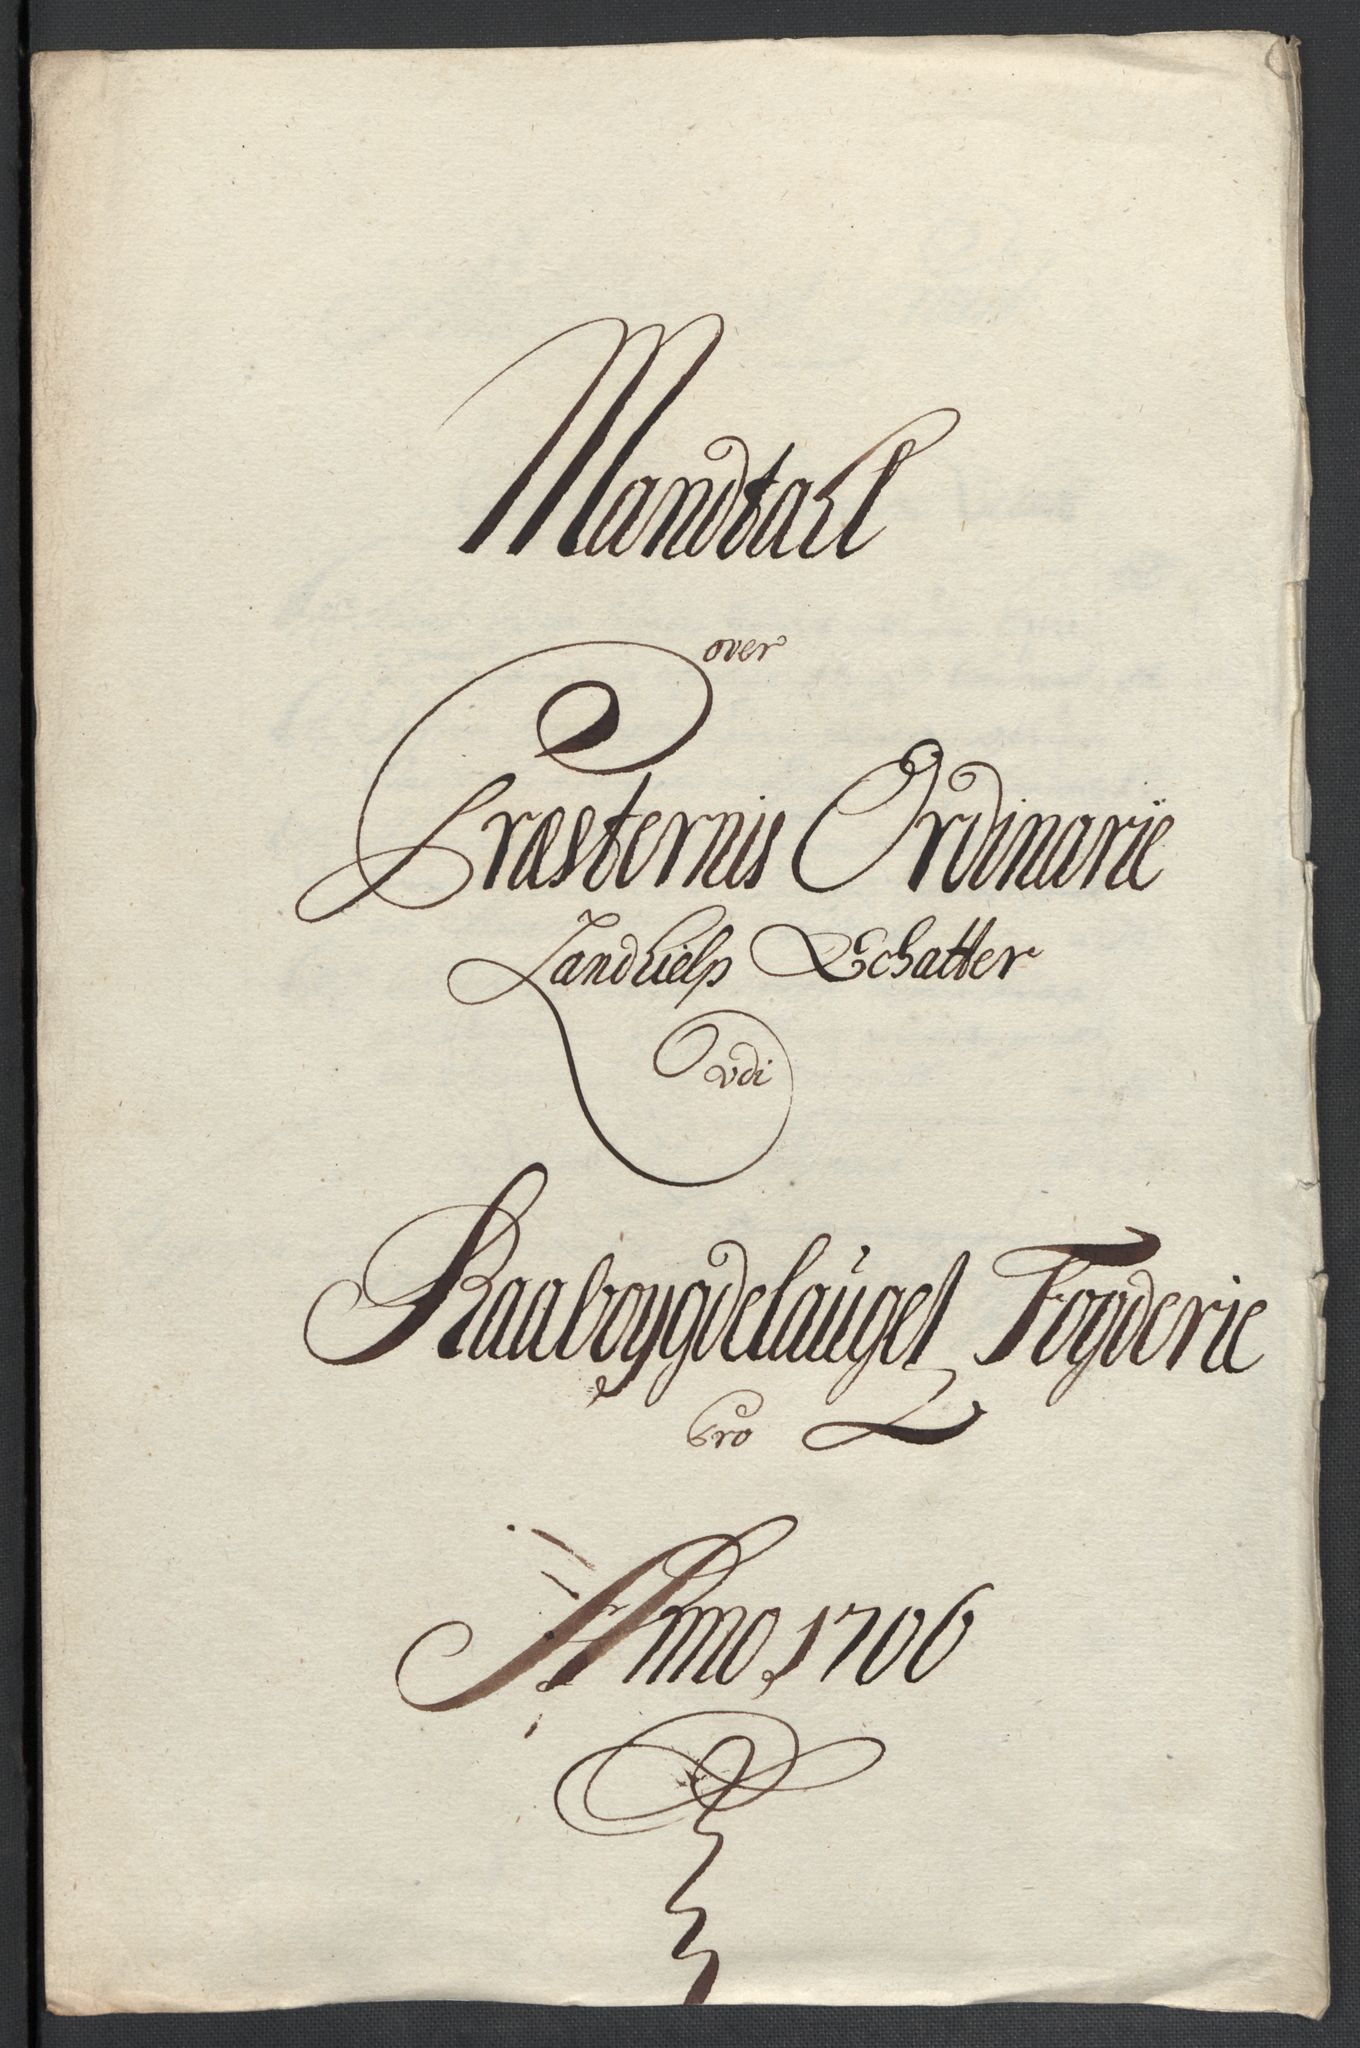 Mandtall
over
Præsternis Ordinarie
Landhielp Schatter
Udi
Raaboygdelauget Fogderie
pro
Anno 1706